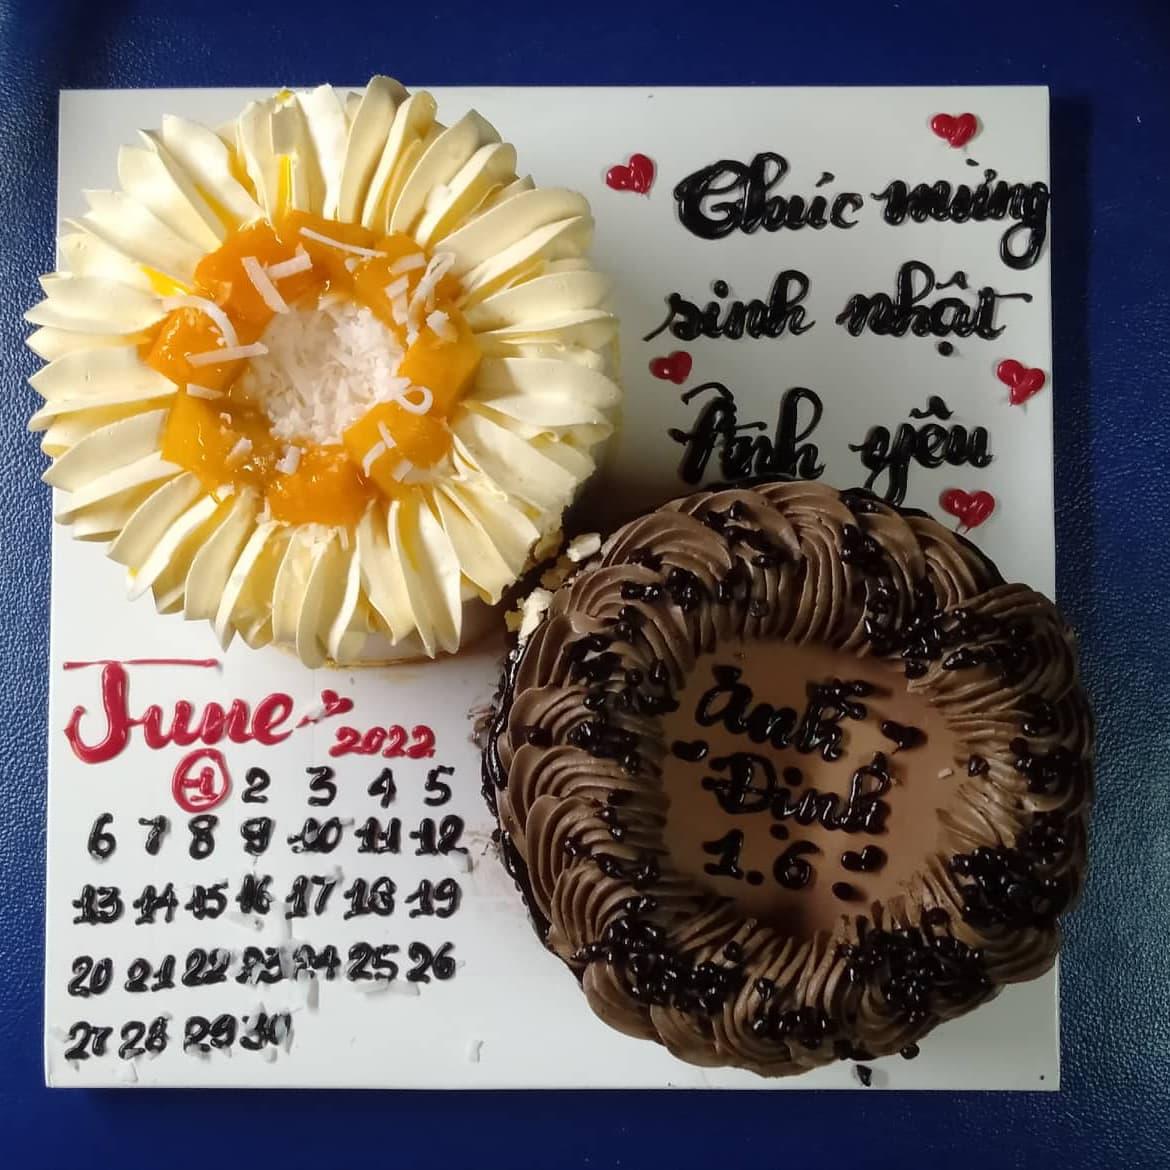 Chúc mừng
sinh nhật
Anh yêu
June 2022
1 2 3 4 5
6 7 8 9 10 11 12
13 14 15 16 17 18 19
20 21 22 23 24 25 26
27 28 29 30
Anh
Định
1.6